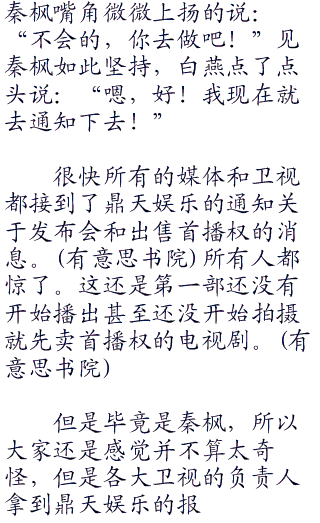 秦枫嘴角微微上扬的说：
“不会的，你去做吧！”见
秦枫如此坚持，白燕点了点
头说：“嗯，好！我现在就
去通知下去！”
很快所有的媒体和卫视
都接到了鼎天娱乐的通知关
于发布会和出售首播权的消
息。(有意思书院)所有人都
惊了。这还是第一部还没有
开始播出甚至还没开始拍摄
就先卖首播权的电视剧。(有
意思书院)
但是毕竟是秦枫，所以
大家还是感觉并不算太奇
怪，但是各大卫视的负责人
拿到鼎天娱乐的报